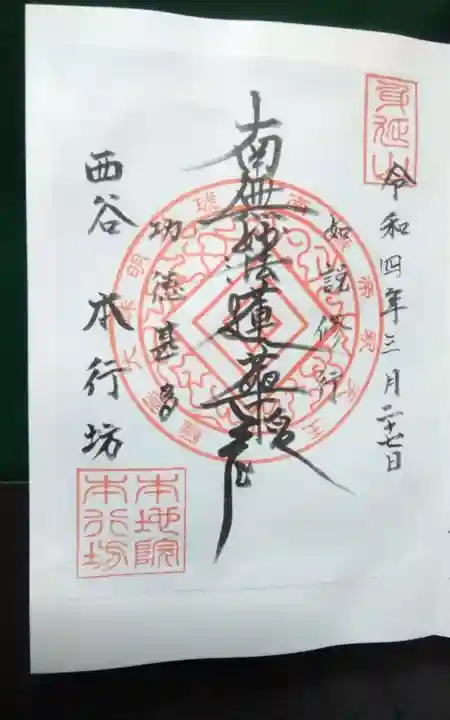 身延山
令和四年三月二十七日
如説修行
南無妙法蓮華経
功徳甚多
西谷 本行坊
本地院
本行坊